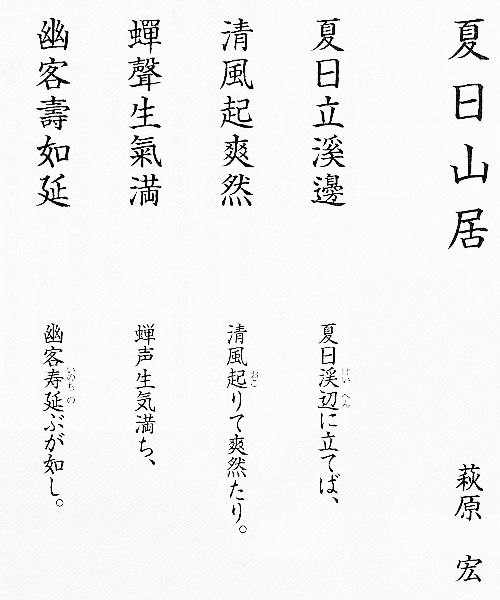 夏日山居
萩原 宏
夏日立溪邊
夏日渓辺に立てば、
けい へん
清風起爽然
清風起りて爽然たり。
おこ
蟬聲生氣満
蝉声生気満ち、
幽客壽如延
幽客寿延ぶが如し。
いのち の